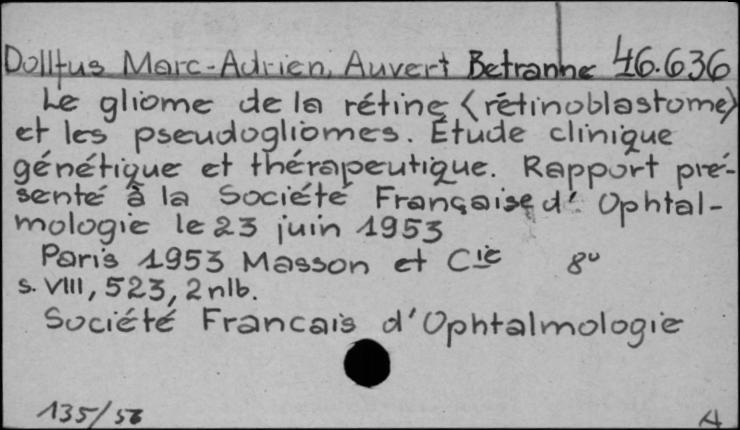 Dollfus Marc-Adrien, Auvert Betranne 46.636
Le gliome de la rétine (rétinoblastome)
et les pseudogliomes. Étude clinique
génétique et thérapeutique. Rapport pré-
senté à la Société Française d' Ophtal-
mologie le 23 juin 1953
Paris 1953 Masson et Cie 8°
s. VIII, 523, 2 nlb.
Société Francais d'Ophtalmologie
135/56
A